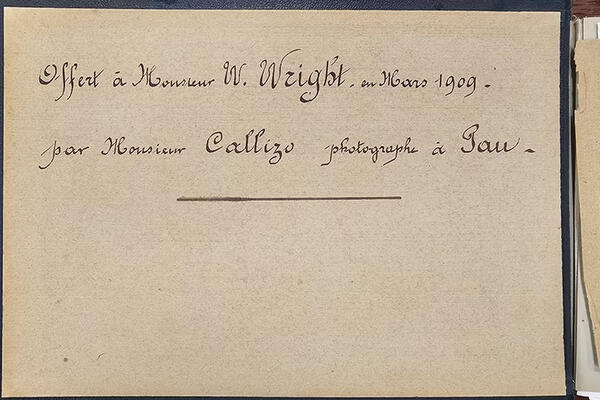 Offert à Monsieur W. Wright. en Mars 1909.
par Monsieur Callizo photographe à Pau